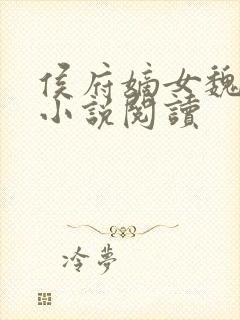 侯府嫡女魏
小說閱讀
冷夢